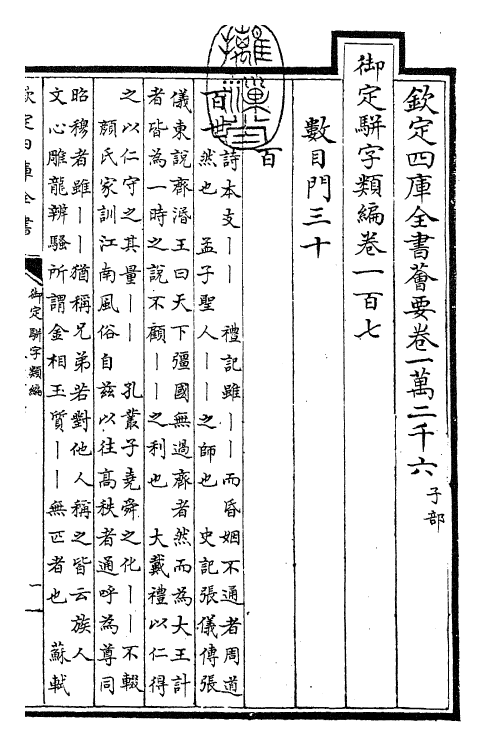 欽定四庫全書薈要卷一萬二千六 子部
御定駢字類編卷一百七
數目門三十
百
百世 詩本支丨丨 禮記雖丨丨而昏姻不通者周道
然也 孟子聖人丨丨之師也 史記張儀傳張
儀東說齊湣王曰天下彊國無過齊者然而為大王計
者皆為一時之說不顧丨丨之利也 大戴禮以仁得
之以仁守之其量丨丨 孔叢子堯舜之化丨丨不輟
顏氏家訓江南風俗自茲以往高秩者通呼為尊同
昭穆者雖丨丨猶稱兄弟若對他人稱之皆云族人
文心雕龍辨騷所謂金相玉質丨丨無匹者也 蘇軾
欽定四庫全書
御定駢字類編
一